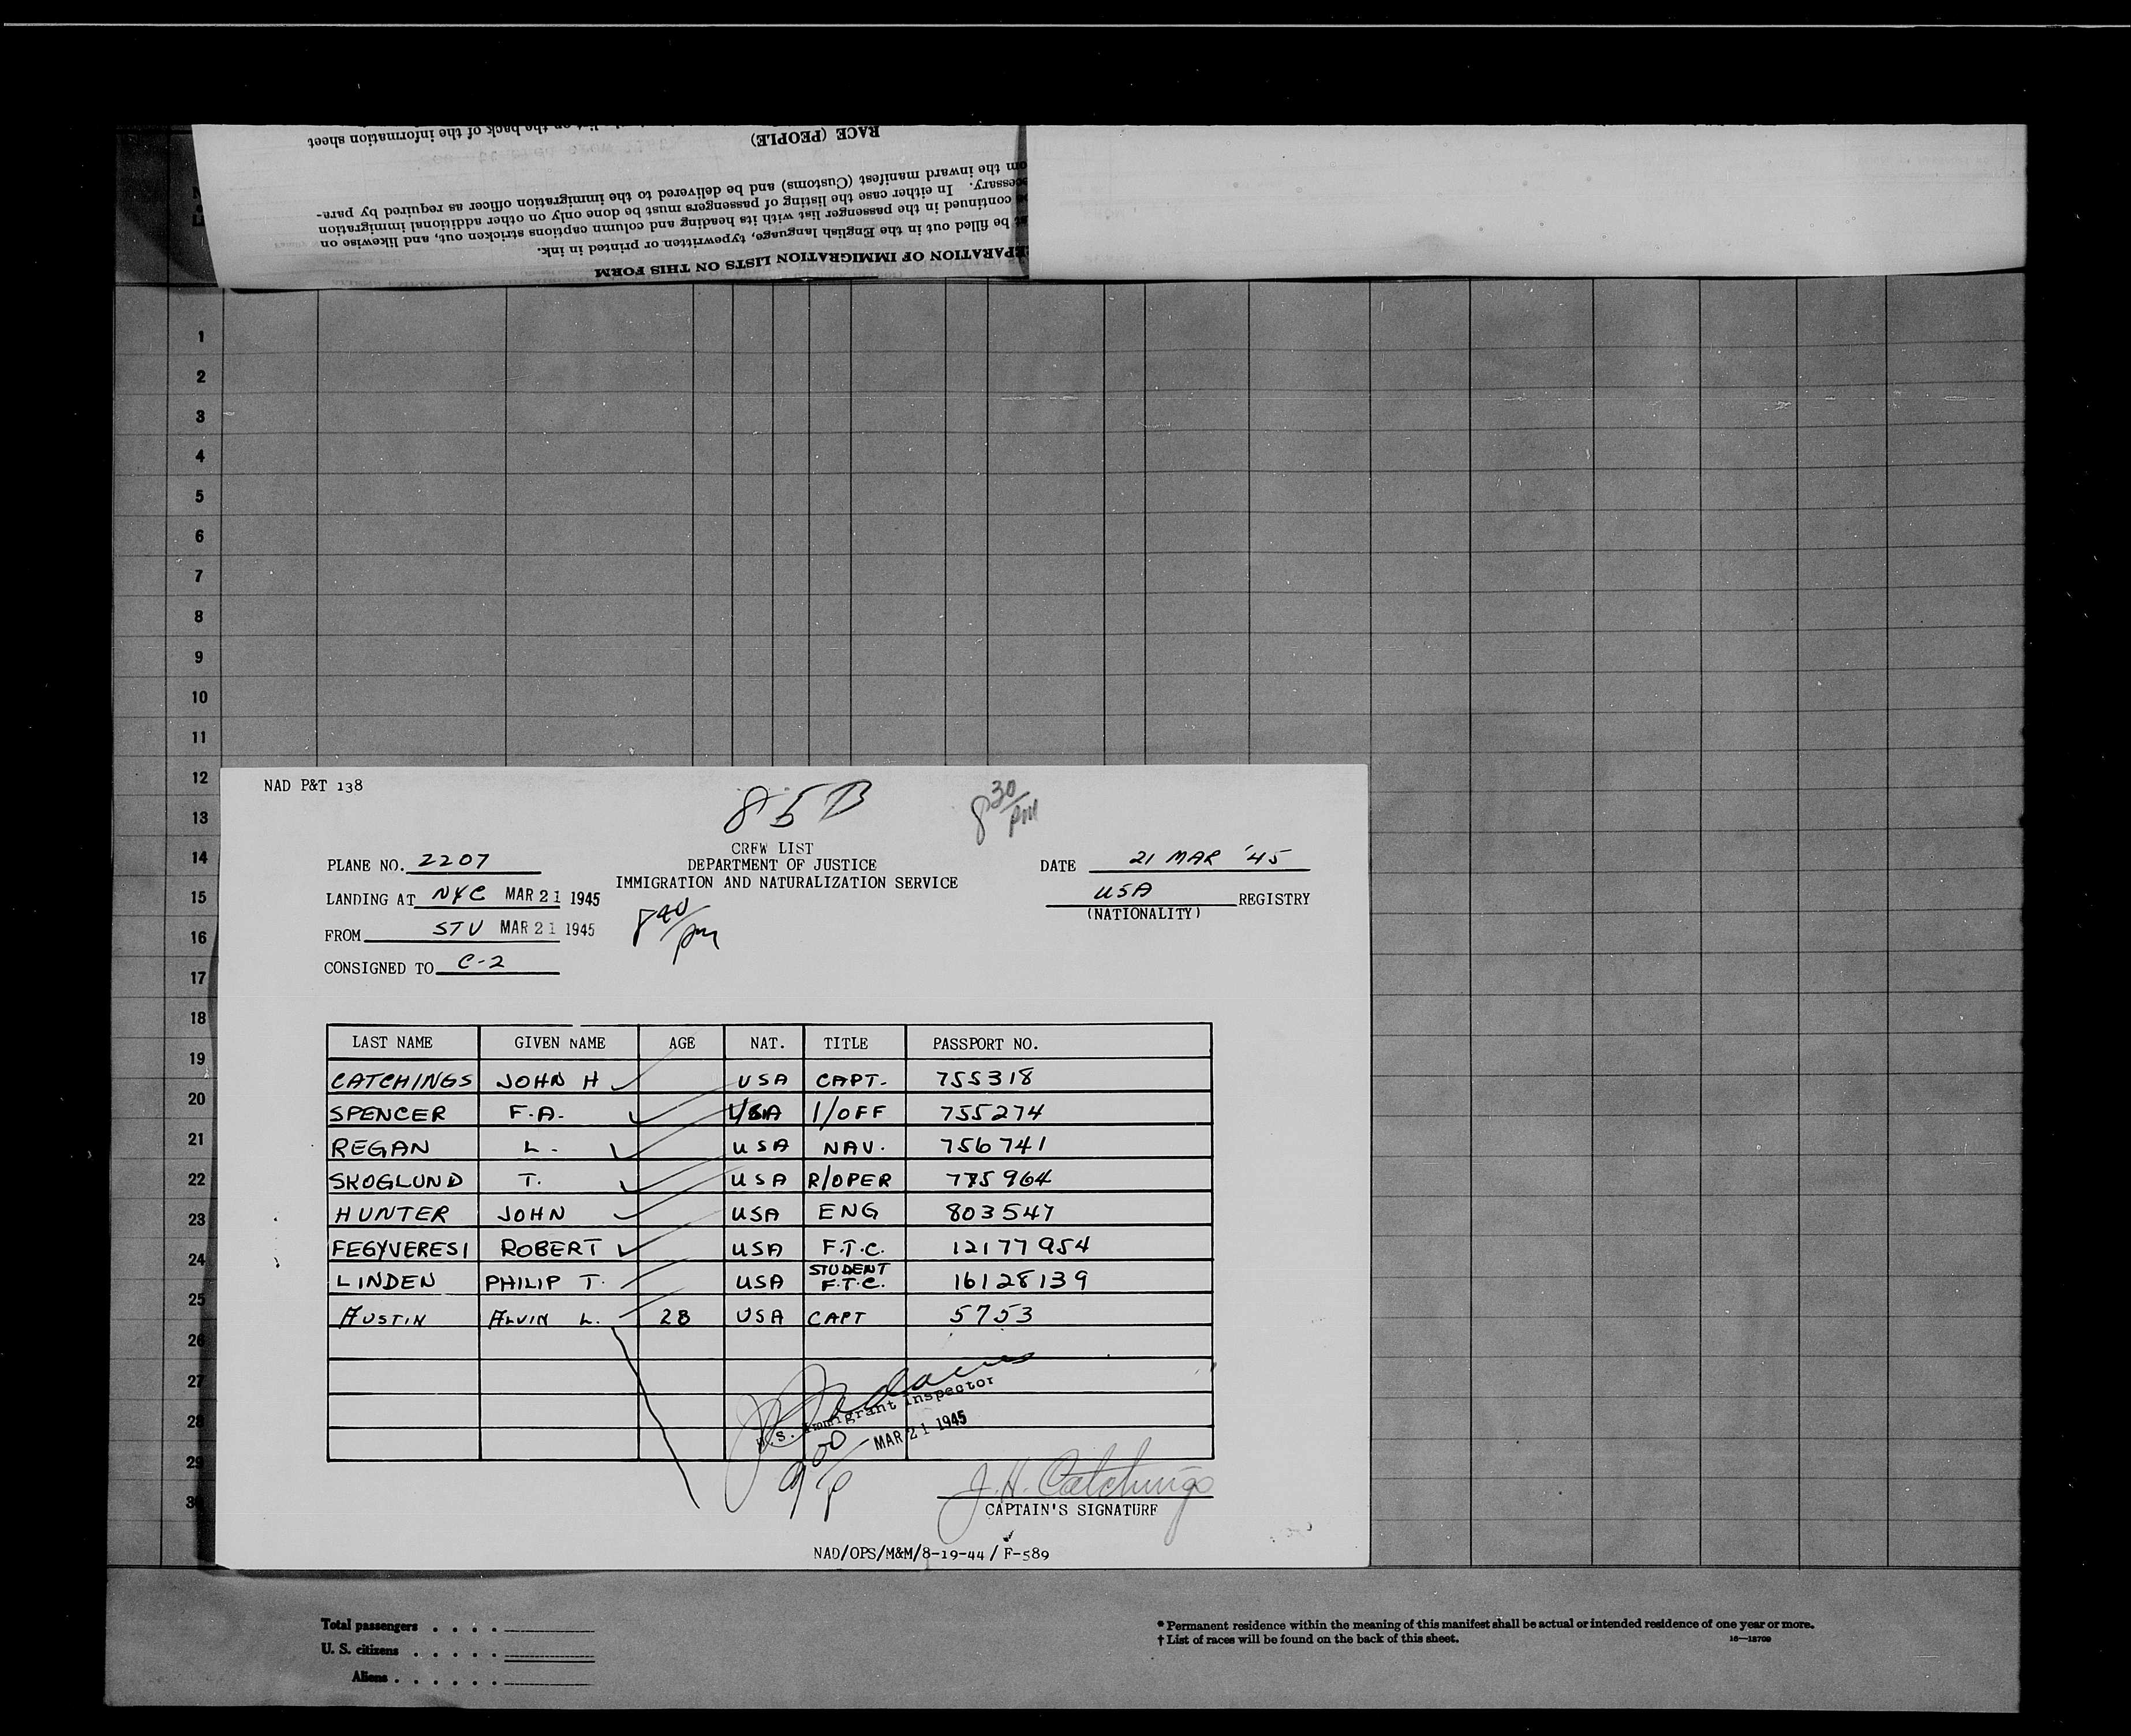 RACE (PEOPLE)
the back of the information sheet
om the inward manifest (Customs) and be delivered to the immigration officer as required by para-
cessary. In either case the listing of passengers must be done only on other additional immigration
continued in the passenger list with its heading and column captions stricken out, and likewise on
be filled out in the English language, typewritten or printed in ink.
EPARATION OF IMMIGRATION LISTS ON THIS FORM
1
2
3
4
5
6
7
8
9
10
11
12
13
14
15
16
17
18
19
20
21
22
23
24
25
26
27
28
29
30
NAD P&T 138
85B
8 30/pm
CREW LIST
DEPARTMENT OF JUSTICE
IMMIGRATION AND NATURALIZATION SERVICE
PLANE NO. 2207
DATE 21 MAR '45
LANDING AT NYC MAR 21 1945
USA REGISTRY
(NATIONALITY)
8 40/pm
FROM STU MAR 21 1945
CONSIGNED TO C-2
LAST NAME GIVEN NAME AGE NAT. TITLE PASSPORT NO.
CATCHINGS JOHN H USA CAPT. 755318
SPENCER F.A. USA 1/OFF 755274
REGAN L. USA NAV. 756741
SKOGLUND T. USA R/OPER 775964
HUNTER JOHN USA ENG 803547
FEGYVERESI ROBERT USA F.T.C. 12177954
LINDEN PHILIP T. USA STUDENT F.T.C. 16128139
AUSTIN ALVIN L. 28 USA CAPT 5753
U.S. Immigrant Inspector
MAR 21 1945
9 00/p
J. H. Catchings
CAPTAIN'S SIGNATURE
NAD/OPS/M&M/8-19-44/F-589
Total passengers . . . .
U. S. citizens . . . . .
Aliens . . . . . .
* Permanent residence within the meaning of this manifest shall be actual or intended residence of one year or more.
† List of races will be found on the back of this sheet.
16—18709